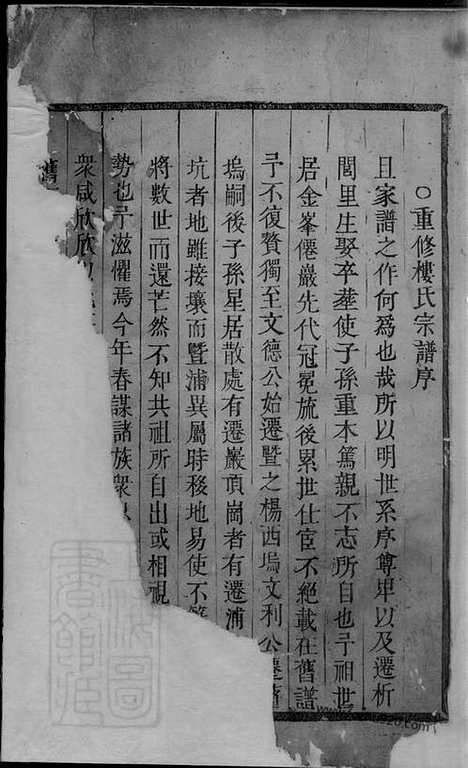 ○重修樓氏宗譜序
且家譜之作何為也哉所以明世系序尊卑以及遷析
閭里生娶卒塟使子孫重木篤親不志所自也予祖世
居金峯僊巖先代冠冕旒後累世仕宦不絕載在舊譜
予不復贅獨至文德公始遷暨之楊西塢文利公遷
塢嗣後子孫星居散處有遷巖頂崗者有遷浦
坑者地雖接壤而暨浦異屬時移地易使不
將數世而還芒然不知共祖所自出或相視
勢也予滋懼焉今年春謀諸族衆
衆咸欣欣
舊
圖
書館